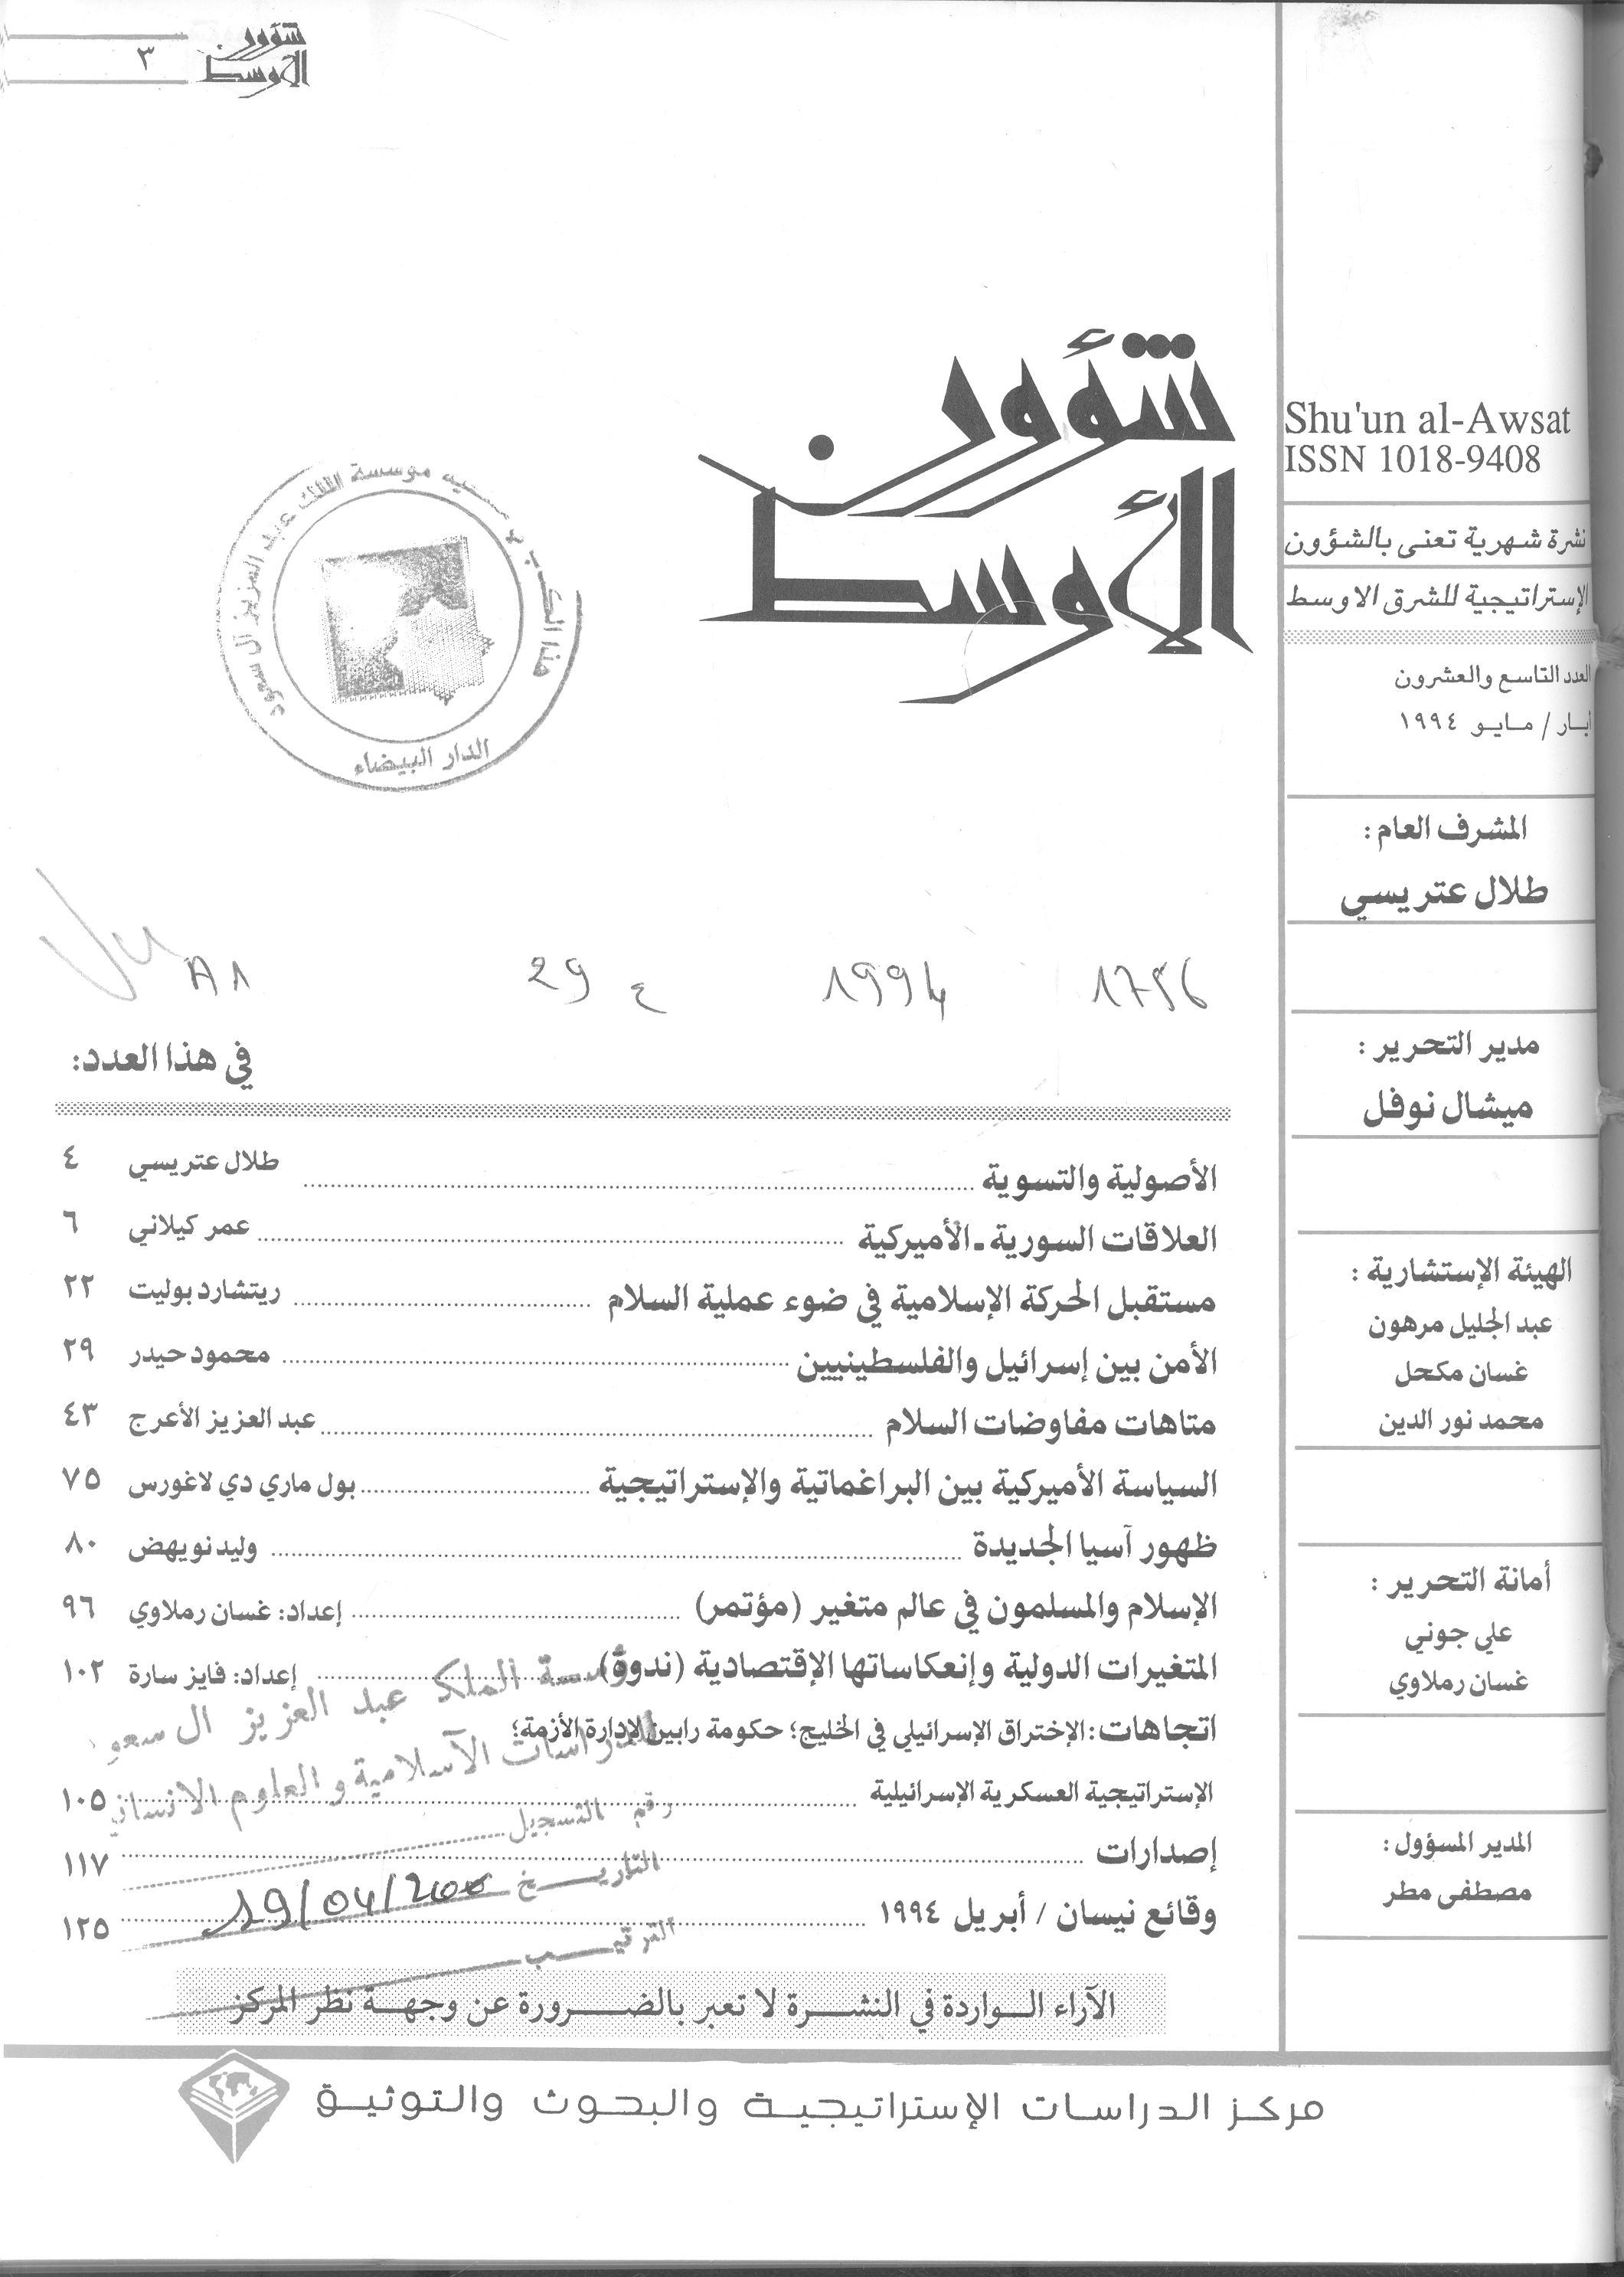 ٣
شؤون
الأوسط
شؤون
الأوسط
Shu'un al-Awsat
ISSN 1018-9408
نشرة شهرية تعنى بالشؤون
الإستراتيجية للشرق الاوسط
العدد التاسع والعشرون
أيار / مايو ١٩٩٤
المشرف العام :
طلال عتريسي
مدير التحرير :
ميشال نوفل
الهيئة الإستشارية :
عبد الجليل مرهون
غسان مكحل
محمد نور الدين
أمانة التحرير :
علي جوني
غسان رملاوي
المدير المسؤول :
مصطفى مطر
مؤسسة الملك عبد العزيز ال سعود
الدار البيضاء
1994
29 ع
في هذا العدد:
الأصولية والتسوية ........ طلال عتريسي ٤
العلاقات السورية ـ الأميركية ........ عمر كيلاني ٦
مستقبل الحركة الإسلامية في ضوء عملية السلام ........ ريتشارد بوليت ٢٢
الأمن بين إسرائيل والفلسطينيين ........ محمود حيدر ٢٩
متاهات مفاوضات السلام ........ عبد العزيز الأعرج ٤٣
السياسة الأميركية بين البراغماتية والإستراتيجية ........ بول ماري دي لاغورس ٧٥
ظهور آسيا الجديدة ........ وليد نويهض ٨٠
الإسلام والمسلمون في عالم متغير (مؤتمر) ........ إعداد: غسان رملاوي ٩٦
المتغيرات الدولية وإنعكاساتها الإقتصادية (ندوة) ........ إعداد: فايز سارة ١٠٢
اتجاهات: الإختراق الإسرائيلي في الخليج؛ حكومة رابين لإدارة الأزمة؛
الإستراتيجية العسكرية الإسرائيلية ........ ١٠٥
إصدارات ........ ١١٧
وقائع نيسان / أبريل ١٩٩٤ ........ ١٢٥
الملك عبد العزيز ال سعود
للدراسات الآسلامية و العلوم الانسانية
رقم التسجيل
التاريخ 19/04/200
الترتيب
الآراء الواردة في النشرة لا تعبر بالضرورة عن وجهة نظر المركز
مركز الدراسات الإستراتيجية والبحوث والتوثيق